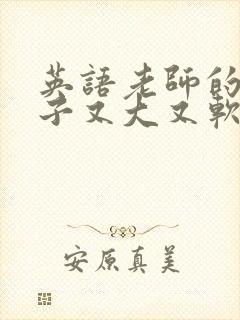 英語老師的
子又大又軟
安原真美